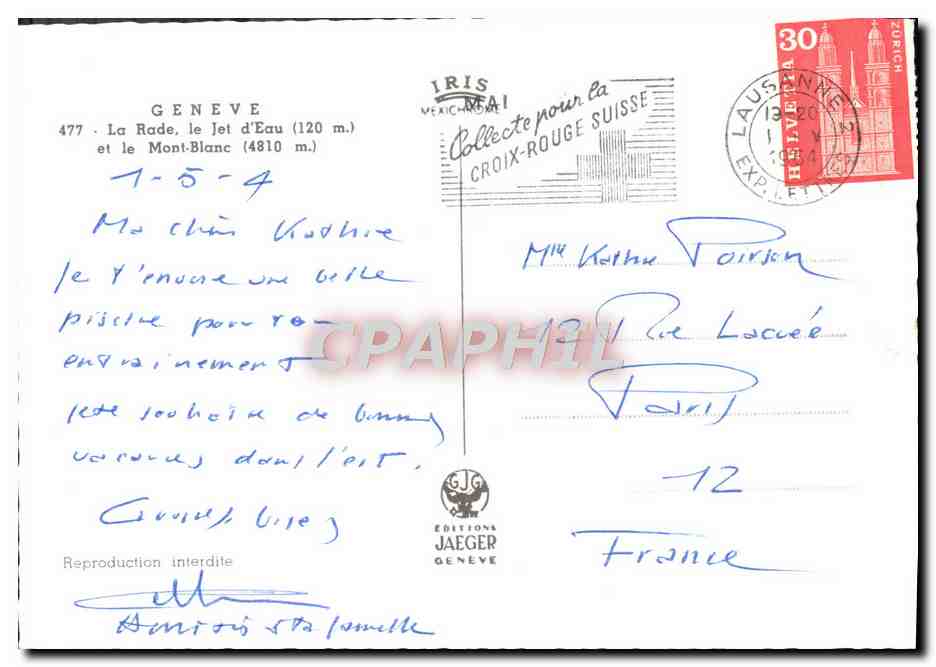 GENEVE
477 - La Rade, le Jet d'Eau (120 m.)
et le Mont-Blanc (4810 m.)
1-5-4
Ma chère Kathie
Je t'envoie une belle
piscine pour ton
entrainement
je te souhaite de bonnes
vacances dans l'est.
Grosses bises
Reproduction interdite
et sa famille
IRIS
MEXICHROME
MAI
Collecte pour la
CROIX-ROUGE SUISSE
LAUSANNE 2
EXP. LETTRES
30
HELVETIA
ZÜRICH
Mlle Kathie Poirson
12 Rue Lacuée
Paris
12
France
GJG
EDITIONS
JAEGER
GENÈVE
CPAPHIL